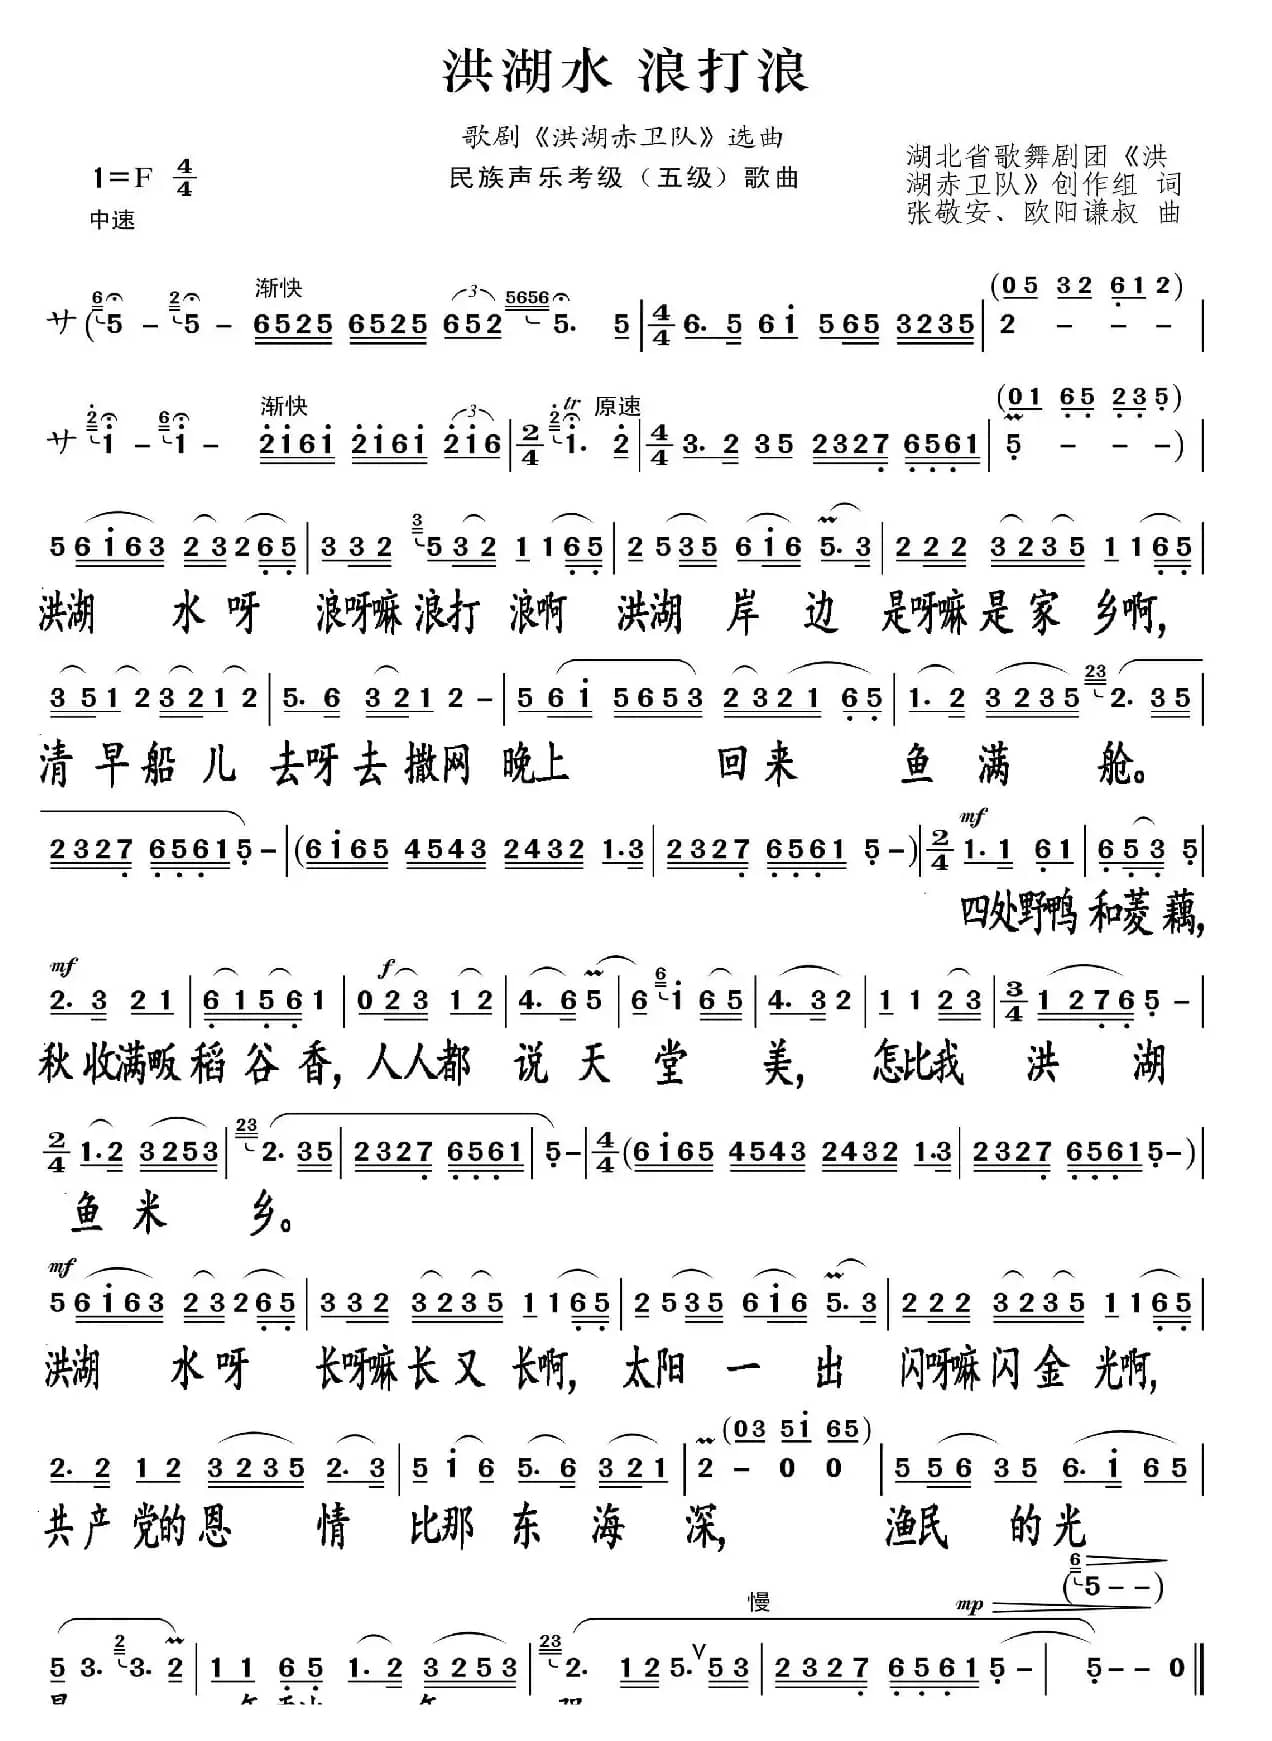 洪湖水 浪打浪
歌剧《洪湖赤卫队》选曲
民族声乐考级（五级）歌曲
1=F 4/4
中速
湖北省歌舞剧团《洪
湖赤卫队》创作组 词
张敬安、欧阳谦叔 曲
渐快
(05 32 612)
サ(5 – 5 – 6525 6525 652 5. 5 | 4/4 6. 5 6i 565 3235 | 2 – – – |
渐快 tr 原速
(01 65 235)
サ i – i – 2i6i 2i6i 2i6 | 2/4 i. 2 | 4/4 3. 2 35 2327 6561 | 5 – – –) |
5 6i63 23265 | 332 532 1165 | 2535 6i6 5. 3 | 222 3235 1165 |
洪湖 水呀 浪呀嘛浪打 浪啊 洪湖 岸 边 是呀嘛是家 乡啊，
351 2321 2 | 5. 6 321 2 – | 56i 5653 2321 65 | 1. 2 3235 2. 35 |
清早船儿 去呀去撒网 晚上 回来 鱼满 舱。
mf
2327 65615 – | (6i65 4543 2432 1.3 | 2327 6561 5 –) | 2/4 1. 1 61 | 653 5 |
四处野鸭 和菱藕，
mf f
2. 3 21 | 6156 1 | 023 12 | 4. 65 | 6i 65 | 4. 32 | 11 23 | 3/4 1276 5 – |
秋收满畈稻谷香，人人都 说天堂 美，怎比我 洪 湖
2/4 1.2 3253 | 2. 35 | 2327 6561 | 5 – | 4/4 (6i65 4543 2432 1.3 | 2327 65615 –) |
鱼米 乡。
mf
5 6i63 23265 | 332 3235 1165 | 2535 6i6 5. 3 | 222 3235 1165 |
洪湖 水呀 长呀嘛长又 长啊，太阳 一 出 闪呀嘛闪金 光啊，
(03 5i 65)
2. 2 12 3235 2. 3 | 5i6 5. 6 321 | 2 – 0 0 | 556 35 6. i 65 |
共产党的恩 情 比那东海 深，渔民 的光
慢 mp (5 – –)
5 3. 3. 2 | 11 65 1. 2 3253 | 2. 12 5. V 53 | 2327 6561 5 – | 5 – – 0 ‖